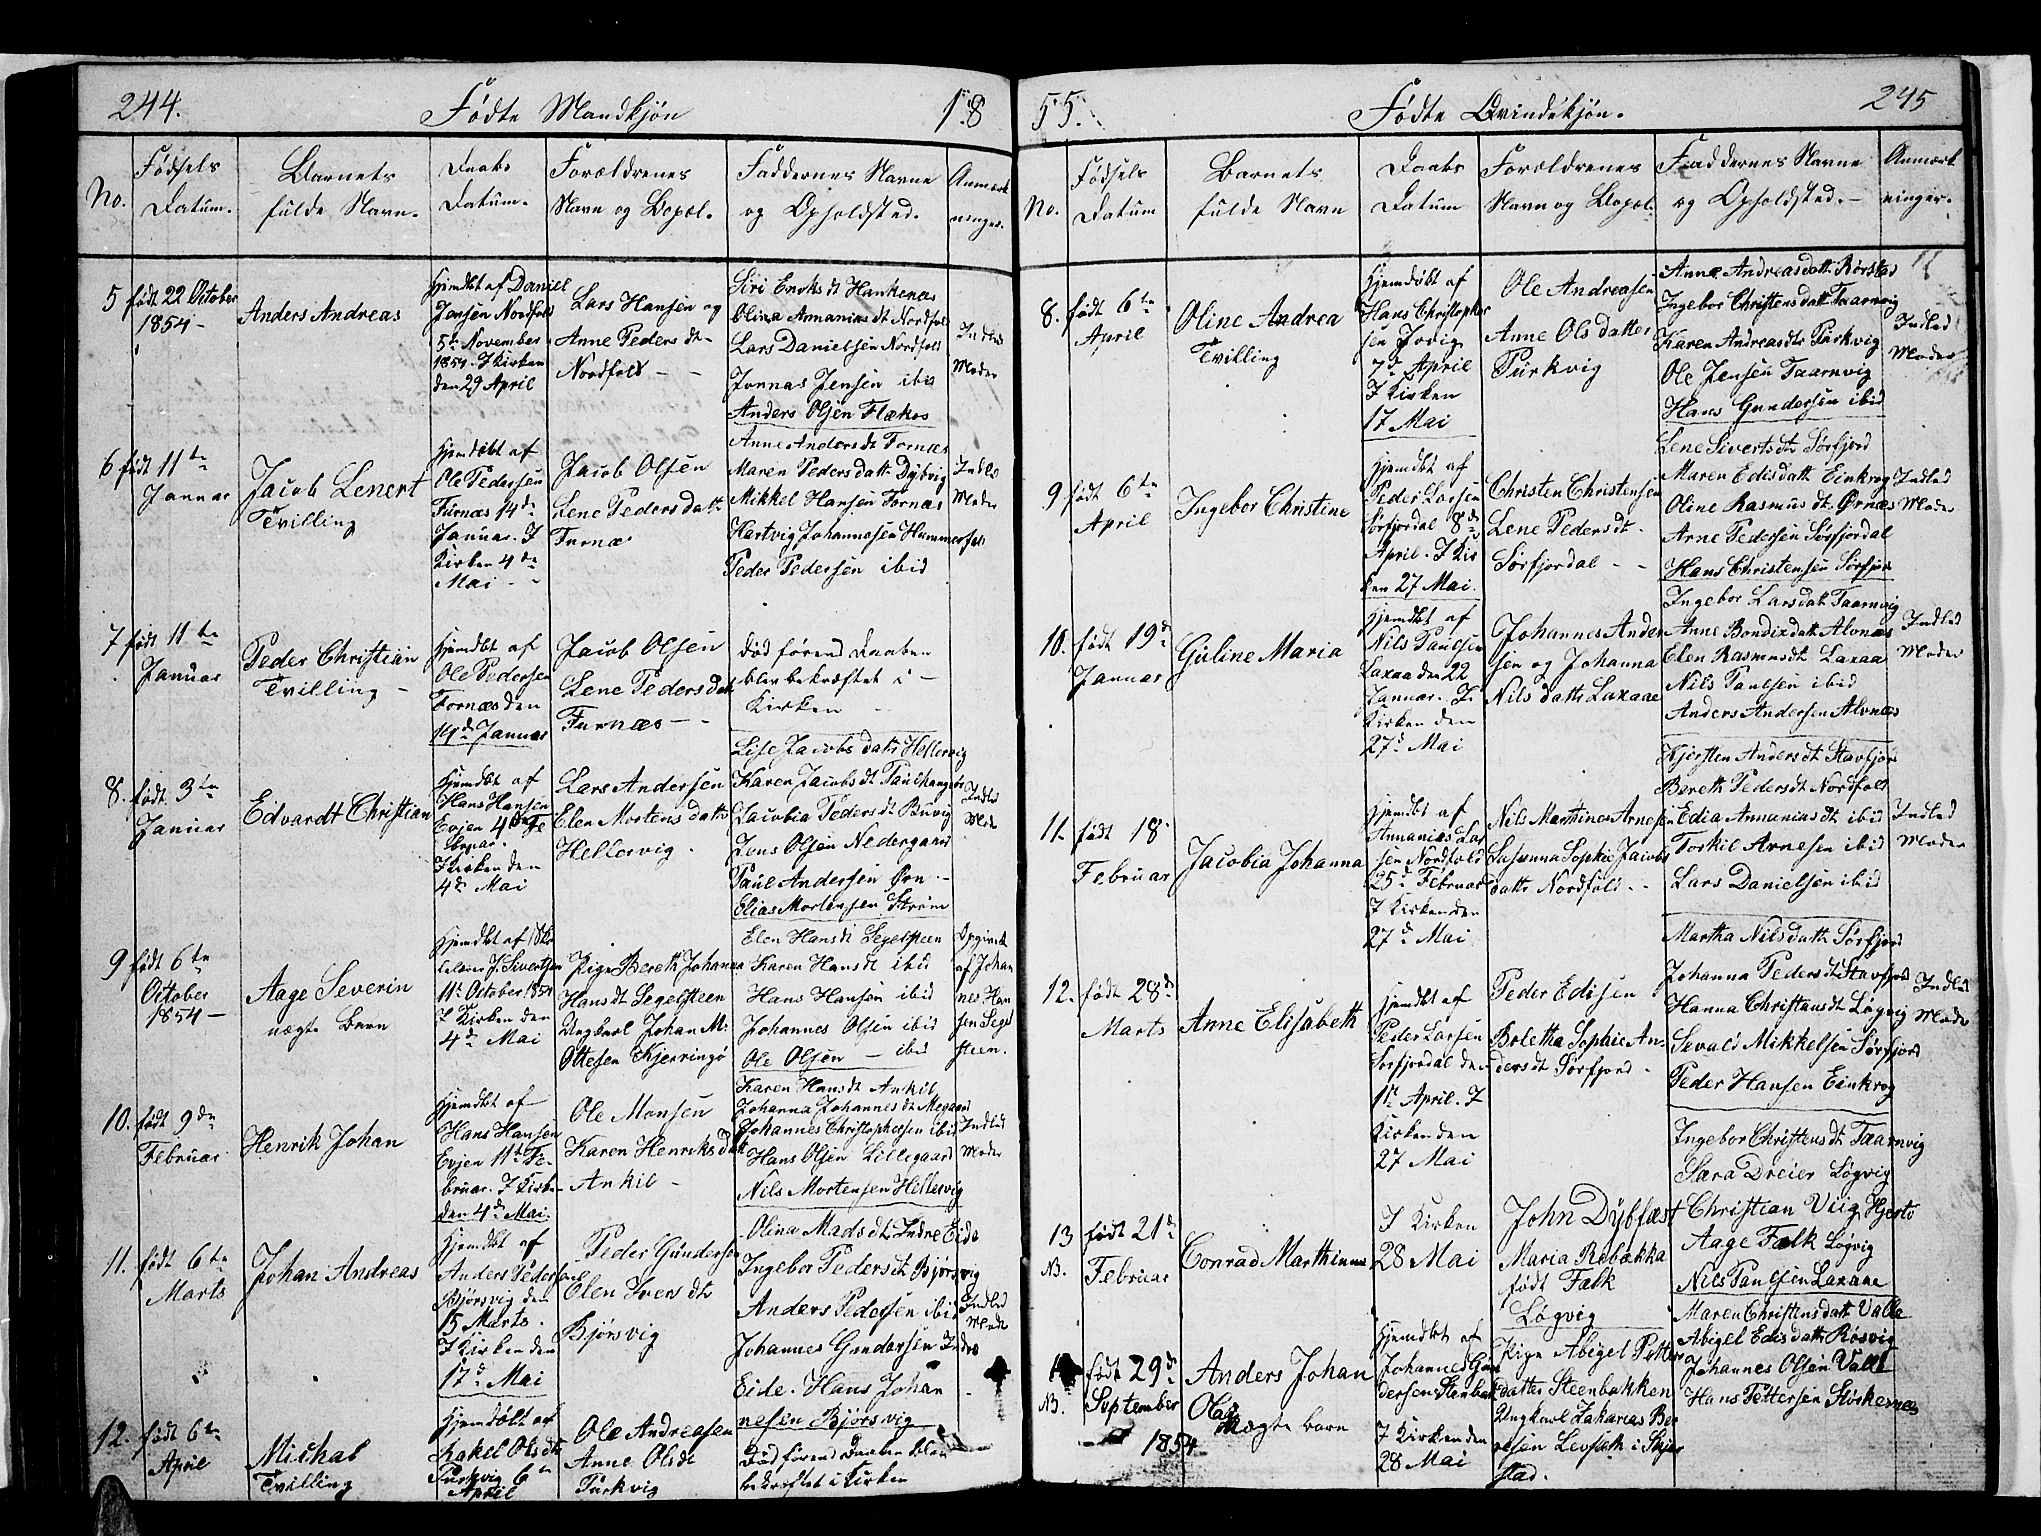 244.
Fødte Mandkjøn
18
No.
Fødsels
Datum.
Barnets
fulde Navn.
Daabs
Datum.
Forældrenes
Navn og Bopæl.
Faddernes Navne
og Opholdsted.
Anmærk
ninger.
5
født 22 October
1854 -
Anders Andreas
Hjemdbt af Daniel
Jensen Nordfold
5te November
1854. I Kirken
den 29 April
Lars Hansen og
Anne Peders dt
Nordfold - -
Siri Enoks dt Hankenæs
Olina Annanias dt Nordfold
Lars Danielsen Nordfold
Jonnas Jensen ibid
Anders Olsen Flækos
Indled
Moder
6
født 11te
Januar
Jacob Lenert
Tvilling
Hjemdøbt af
Ole Pedersen
Furnæs 14de
Januar. I
Kirken 4de
Mai - -
Jacob Olsen
Lene Peders datt
Furnæ
Anne Anders dt Fornæs
Maren Peders datt Dybvig
Mikkel Hansen Fornæs
Hartvig Johannesen Hammerfæl
Peder Pedersen ibid
Indled
Moder
7
født 11te
Januar
Peder Christian
Tvilling -
Hjemdbt af
Ole Pedersen
Fornæs den
14de Januar
Jacob Olsen
Lene Peders datt
Furnæs - -
død førend Daaben
blev bekræftet i -
Kirken -
8.
født 3te
Januar
Edvardt Christian
Hjemdbt af
Hans Hansen
Evjen 4de Fe
bruar.
I Kirken den
4de Mai
Lars Andersen
Elen Mortens datt
Hellervig.
Lise Jacobs datt Hellervig
Karen Jacobs dt
Jacobia Peders dt Buvig
Jens Olsen Nedergaard
Paul Andersen Ørn -
Elias Mortensen Strøm
Indled
Mode
9
født 6te
October
1854 -
Aage Severin
uægte Barn
Hjemdbt af
J. Sivertsen
11te October 1854
I Kirken den
4de Mai
Pige Bereth Johanna
Hans dt Segelsteen
Ungkarl Johan M:
Ottesen Kjerringø
Elen Hans dt Segelsteen
Karen Hans dt ibid
Hans Hansen ibid
Johannes Olsen ibid
Ole Olsen - ibid
Opgivet
af Johan
nes Han
sen Segel
steen.
10.
født 9de
Februar
Henrik Johan
Hjemdbt af
Hans Hansen
Evjen 11te Fe-
bruar. I Kirke-
den 4de Mai.
Ole Monsen
Karen Henriks datt
Ankil -
Karen Hans dt Ankil
Johanna Johannes dt Megaard
Johannes Christophersen ibid
Hans Olsen Lillegaard
Nils Mortensen Hellervig
Indled
Moder
11.
født 6te
Marts
Johan Andreas
Hjemdbt af
Anders Pedersen
Bjørsvig den
15 Marts.
I Kirken den
17de Mai
Peder Gundersen
Elen Ivers dt
Bjørsvig
Olina Mads dt Indre Eide
Ingebor Peders dt Bjørsvig
Anders Pedersen ibid
Johannes Gundersen Indre
Eide. Hans Johan
nesen Bjørsvig
Indled
Mode
12.
født 6te
April
Michal
Tvilling
Hjemdøbt af
Rakel Ols dt
Purkvig 6te
April
Ole Andreasen
Anne Ols dt
Purkvig
Død førend Daaben blev
bekræftet i Kirken
55.
Fødte Qvindekjøn.
245
No.
Fødsels
Datum
Barnets
fulde Navn
Daabs
Datum
Forældrenes
Navn og Bopæl.
Faddernes Navne
og Opholdsted. -
Anmærk
ninger.
8.
født 6te
April
Oline Andrea
Tvilling
Hjemdøbt af
Hans Christopher
sen Jovig
7d April
I Kirken
17 Mai
Ole Andreasen
Anne Ols datter
Purkvig
Anne Andreas datt Rørstad
Ingebor Christens datt Taarnvig
Karen Andreas dtr Purkvig
Ole Jensen Taarnvig
Hans Gundersen ibid
Indled
Moder
9
født 6te
April
Ingebor Christine
Hjemdbt af
Peder Larsen
Sørfjordal 8de
April. I Kir
ken 27 Mai.
Christen Christensen
Lene Peders dt.
Sørfjordal - -
Lene Siverts dt Sørfjord
Maren Edis datt Einkrog
Oline Rasmus dt. Ørnæs
Arne Pedersen Sørfjordal
Hans Christensen Sørfjor
Indled
Moder
10.
født 19d
Januar
Guline Maria
Hjemdbt af
Nils Paulsen
Laxaa den 22
Januar. I
Kirken den
27d Mai
Johannes Ander
sen og Johanna
Nils datt Laxaae
Ingebor Lars datt Taarnvig
Anne Bendix datt Alvnæs
Elen Rasmus dt Laxaa
Nils Paulsen ibid
Anders Andersen Alvnæs
Indled
Moder
11.
født 18
Februar
Jacobia Johanna
Hjemdbt af
Annanias Lar
sen Nordfold
25d Februar
I Kirken den
27d Mai
Nils Martines Arnesen
Susanna Sophie Jacobs
datt Nordfold - -
Kjersten Anders dt Stavfjor
Bereth Peders dt Nordfold
Edia Annanias dt ibid
Torkil Arnesen ibid
Lars Danielsen ibid
Indled
Moder
12.
født 28de
Marts
Anne Elisabeth
Hjemdbt af
Peder Larsen
Sørfjordal den
11te April. I
Kirken den
27 Mai
Peder Edisen
Beletha Sophie An-
ders dt Sørfjord -
Martha Nils datt Sørfjord
Johanna Peders dt Stavfjord
Hanna Christians dt Løgvig
Sevald Mikkelsen Sørfjord
Peder Hansen Einkrog
Indled
Mode
13
NB.
født 21d
Februar
Conrad Marthinus
I Kirken
28 Mai
John Dybfæst
Maria Rebækka
født Falk
Løgvig
Ingebor Christens dt Taarnvig
Sara Dreier Løgvig
Christian Viig Hjertø
Aage Falk Løgvig
Nils Paulsen Laxaae
NB.
født 29de
September
1854
Anders Johan
Olai
Uægte barn
Hjemdbt af
Johannes Gun
dersen Stenbak
I Kirken den
28 Mai
Pige Abigel Petters
datter Steenbakken
Ungkarl Zakarias Ber
gesen Levsæth i Skjer
stad.
Maren Christens datt Valle
Abigel Edis datt Røsvig
Johannes Olsen Valle
Hans Pettersen Storkernæs